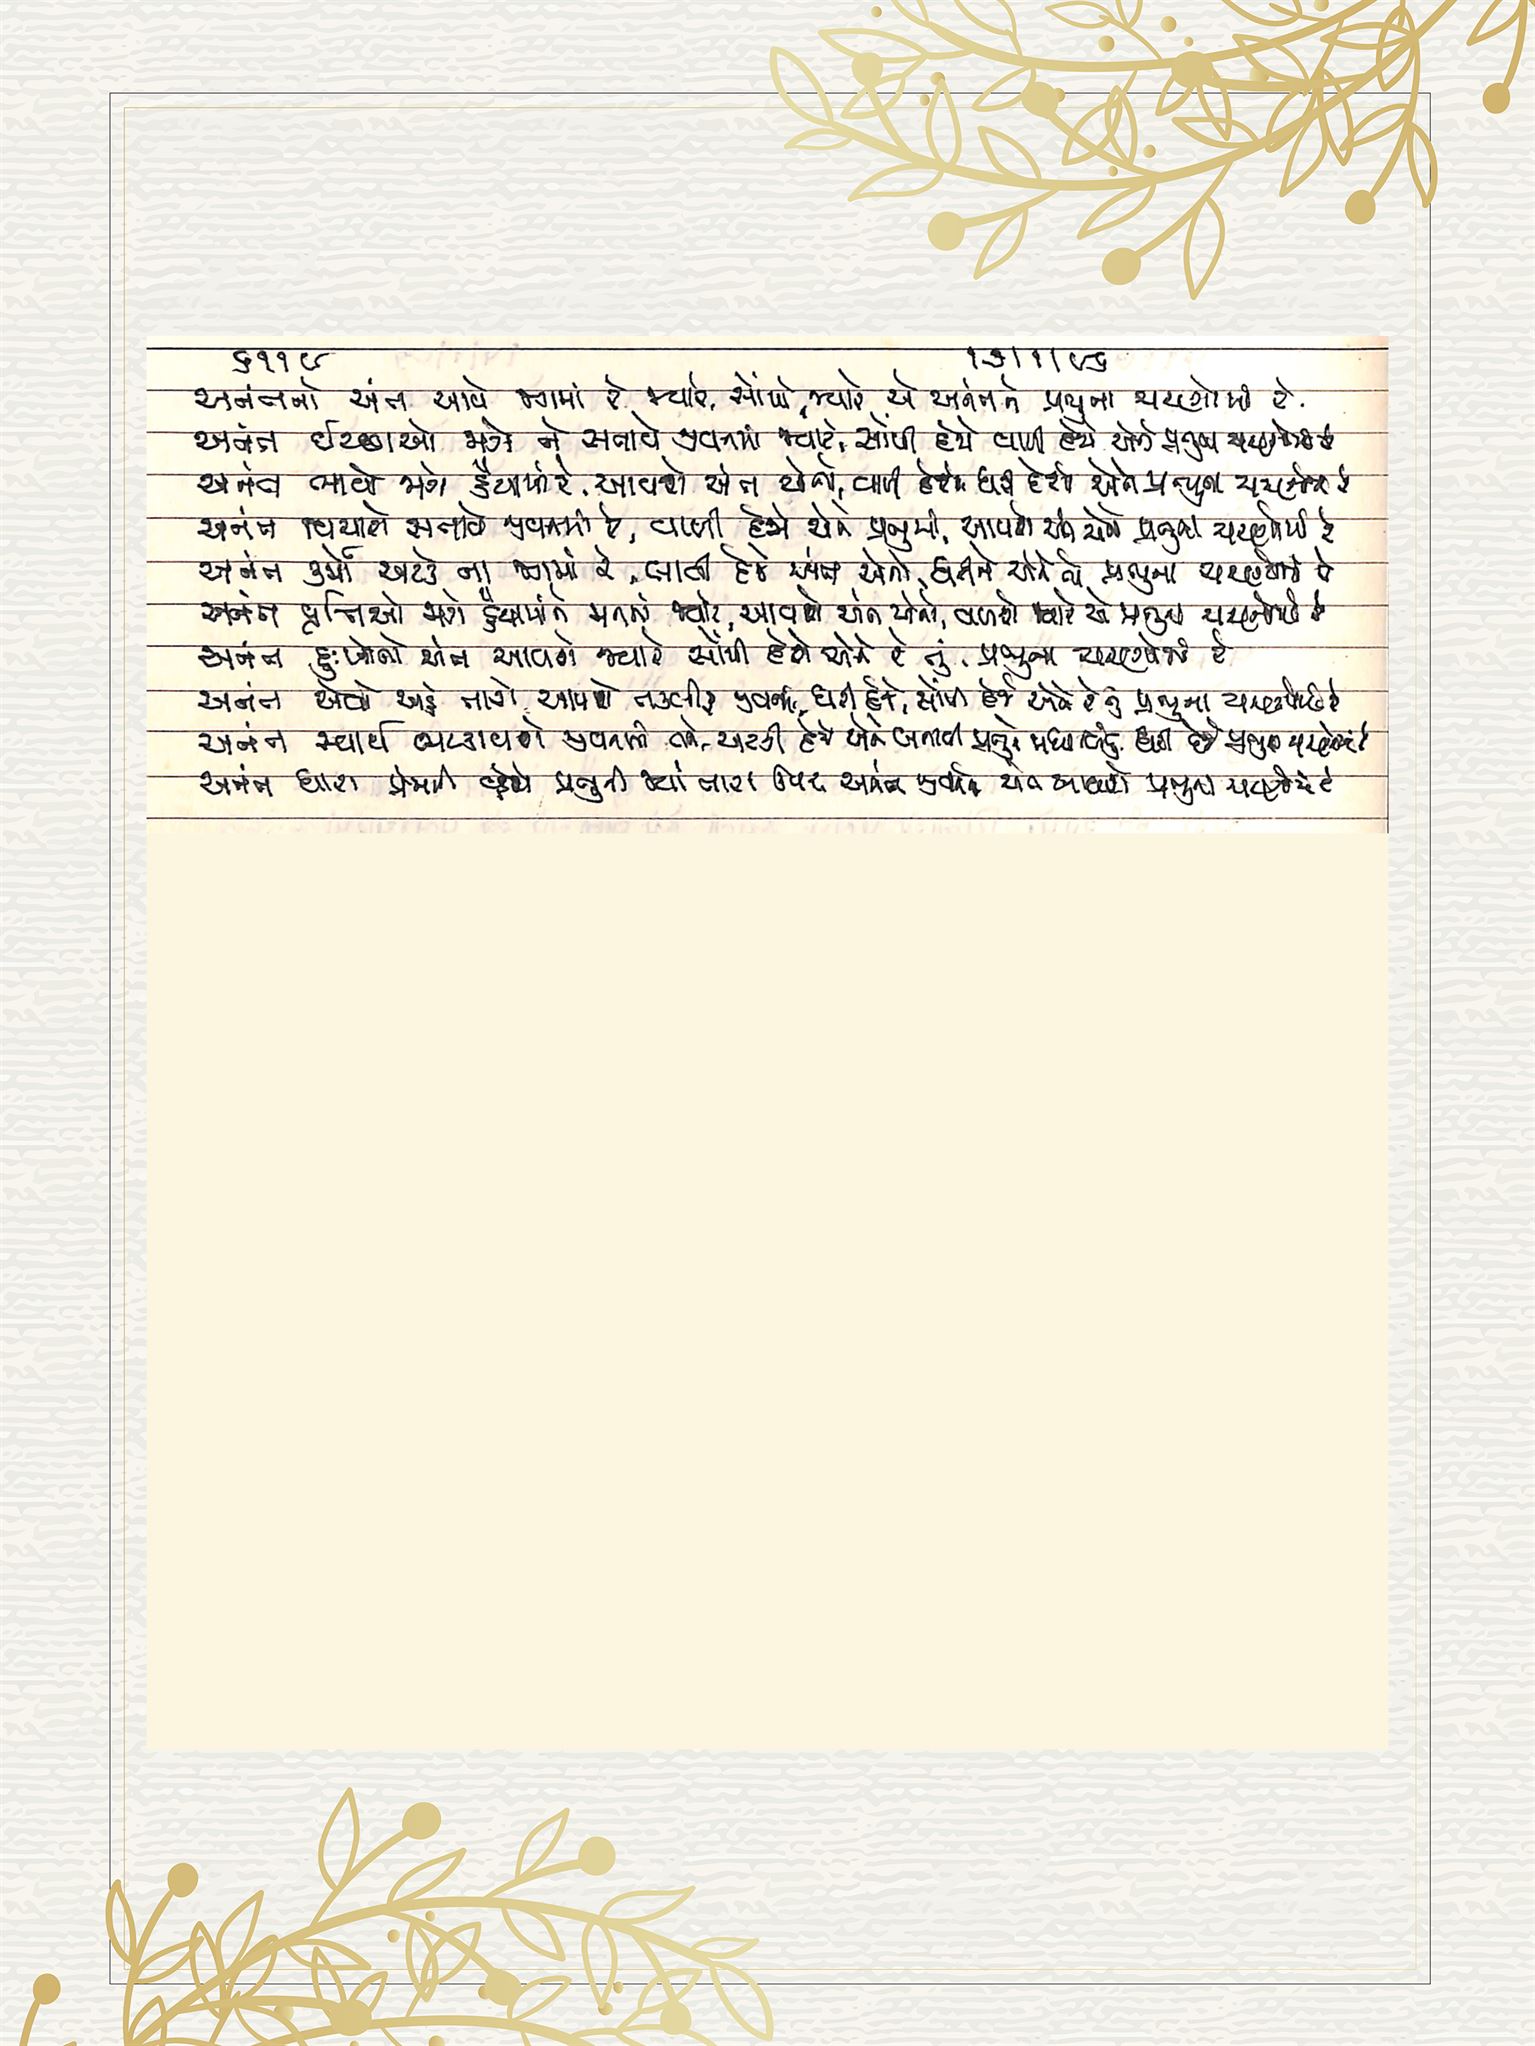 ૬૧૧૯ ૧૩।૧।૯૬
અનંતનો અંત આવે જગમાં રે જ્યારે, સોંપો, જ્યારે એ અનંતને પ્રભુના ચરણોમાં રે.
અનંત ઈચ્છાઓ જાગે ને સતાવે જીવનમાં જ્યારે, સોંપી દેજે વાળી દેજે એને પ્રભુના ચરણોમાં રે
અનંત ભાવો જાગે હૈયામાં રે, આવશે અંત એનો, વાળી દેજે ધરી દેજે એને પ્રભુના ચરણોમાં રે
અનંત વિચારો સતાવે જીવનમાં રે, વાળી દેજે એને પ્રભુમાં, આવશે અંત એનો પ્રભુના ચરણોમાં રે
અનંત કર્મો અટકે ના જગમાં રે, લાવી દેજે અંત એનો, ધરીને એને પ્રભુના ચરણોમાં રે
અનંત વૃત્તિઓ જાગે હૈયામાં ને મનમાં જ્યારે, આવશે અંત એનો, વળશે જ્યારે એ પ્રભુના ચરણોમાં રે
અનંત દુઃખોનો અંત આવશે જ્યારે સોંપી દેશે એને રે તું, પ્રભુના ચરણોમાં રે
અનંત એવો અહં તારો, આપશે તકલીફ જીવનમાં, ધરી દેજે, સોંપી દેજે એને રે તું પ્રભુના ચરણોમાં રે
અનંત સ્વાર્થ ભટકાવશે જીવનમાં તને, અટકી દેજે એને બનાવી પ્રભુને મધ્ય બિંદુ, ધરી દેજે પ્રભુના ચરણોમાં રે
અનંત ધારા પ્રેમની વહેશે પ્રભુની જ્યાં તારા ઉપર અનંત જીવનનો અંત આવશે પ્રભુના ચરણોમાં રે